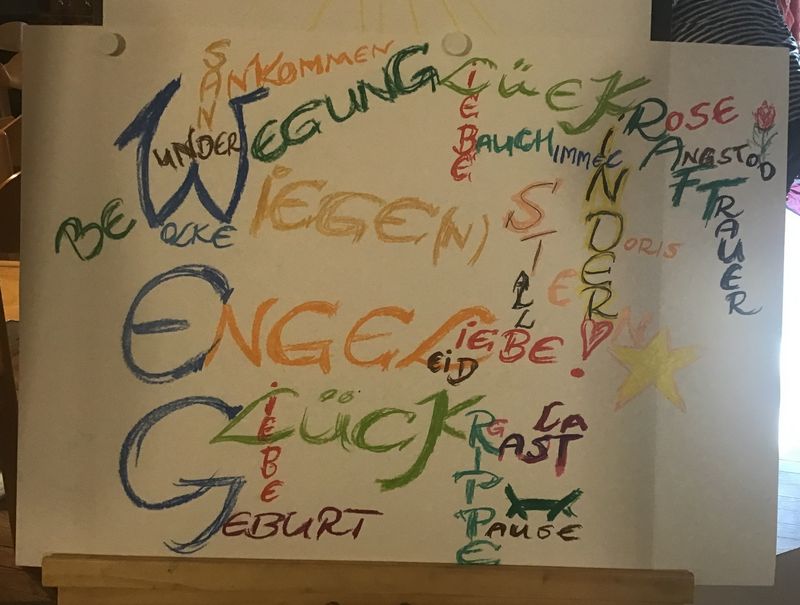 ANKOMMEN
SAN
BEWEGUNG
GLÜCK
LIEBE
KINDER
ROSE
WUNDER
BAUCH
IMMER
ANGST
TOD
KRAFT
TRAUER
WIEGE(N)
WOCKE
DORIS
STERN
STALL
ENGEL
LIEBE!
LEID
GLÜCK
LIEBE
RIPPE
RAST
LAST
GEBURT
PAUSE